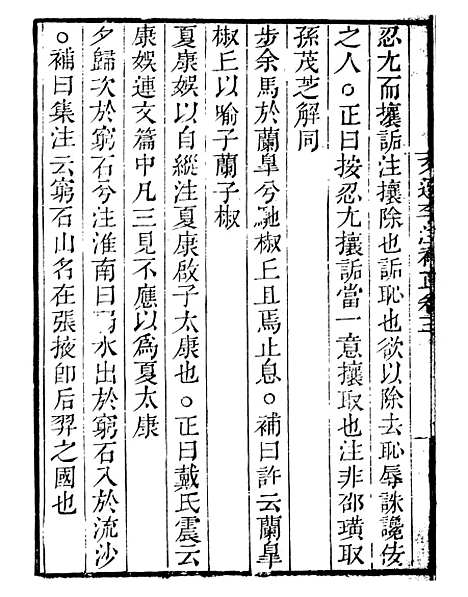 忍尤而攘詬注攘除也詬恥也欲以除去恥辱誅讒佞
之人○正曰按忍尤攘詬當一意攘取也注非邵璜取
孫茂芝解同
步余馬於蘭臯兮馳椒丘且焉止息○補曰許云蘭臯
椒丘以喻子蘭子椒
夏康娛以自縱注夏康啟子太康也○正曰戴氏震云
康娛連文篇中凡三見不應以為夏太康
夕歸次於窮石兮注淮南曰弱水出於窮石入於流沙
○補曰集注云窮石山名在張掖卽后羿之國也
文選李注補正卷三